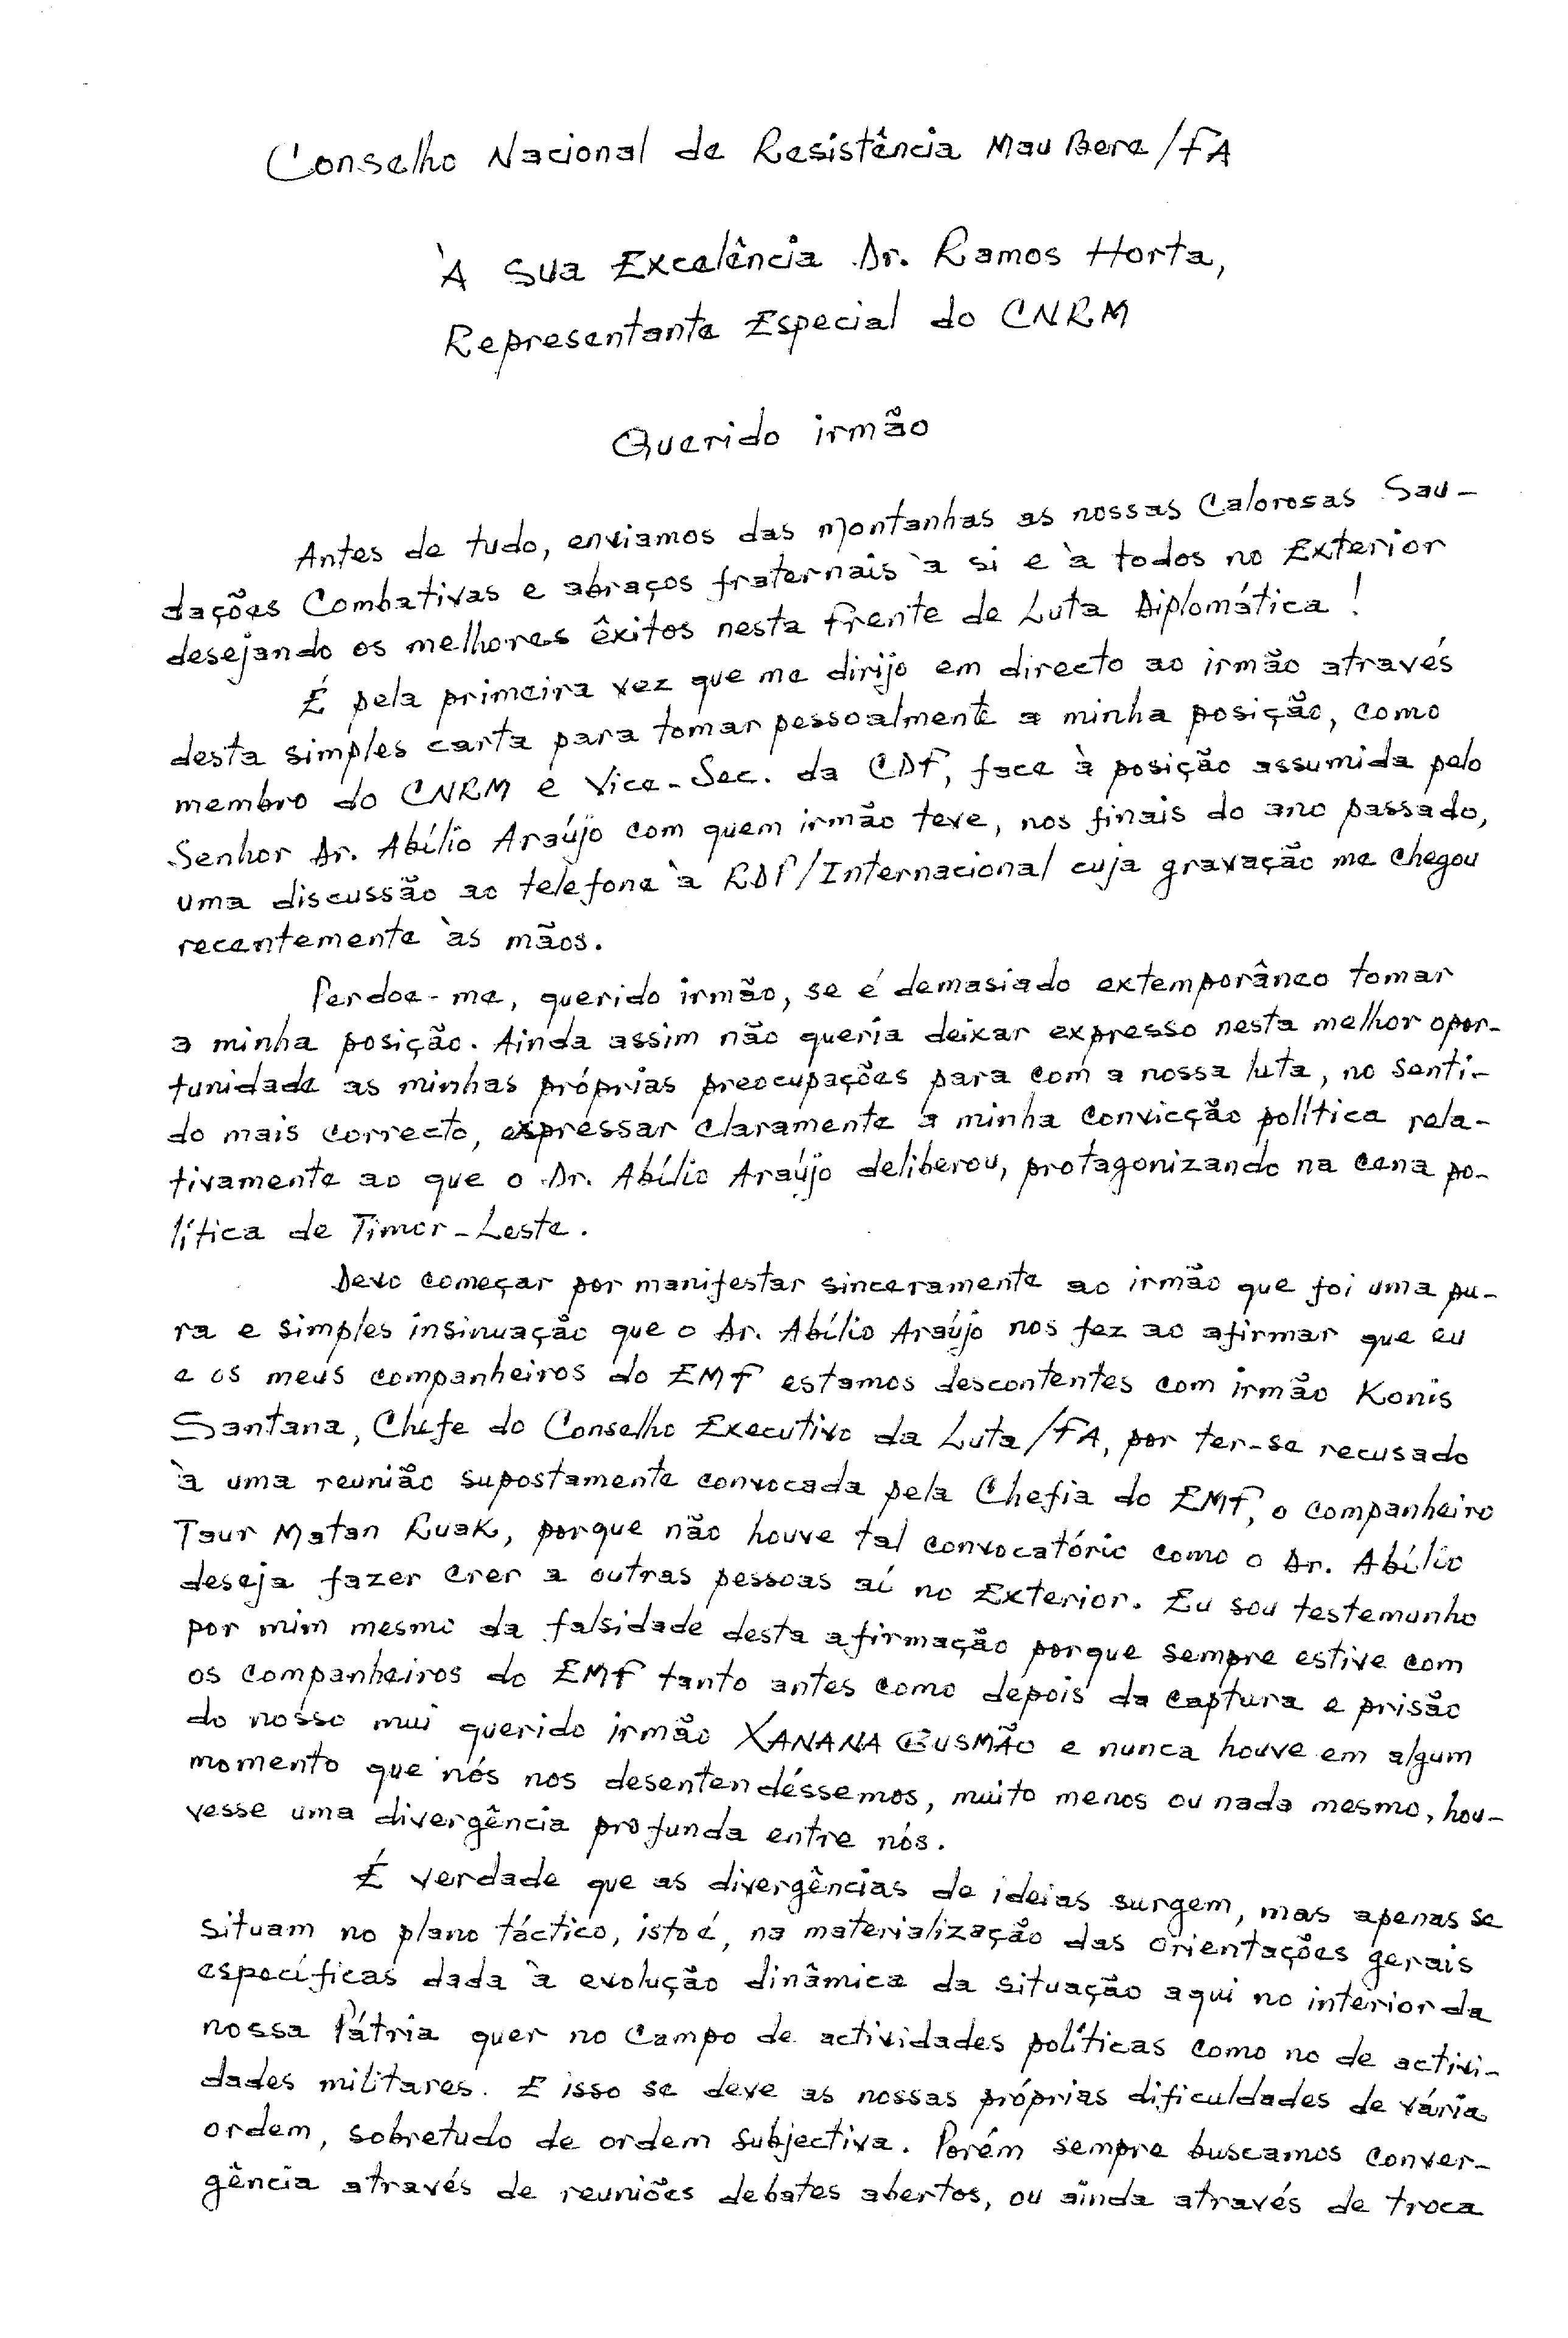 Conselho Nacional de Resistência MauBere/FA
À Sua Excelência Dr. Ramos Horta,
Representante Especial do CNRM
Querido irmão
Antes de tudo, enviamos das montanhas as nossas Calorosas Sau-
dações Combativas e abraços fraternais à si e à todos no Exterior
desejando os melhores êxitos nesta Frente de Luta Diplomática!
É pela primeira vez que me dirijo em directo ao irmão através
desta simples carta para tomar pessoalmente a minha posição, como
membro do CNRM e Vice-Sec. da CDF, face à posição assumida pelo
Senhor Dr. Abílio Araújo com quem irmão teve, nos finais do ano passado,
uma discussão ao telefone à RDP/Internacional cuja gravação me chegou
recentemente às mãos.
Perdoe-me, querido irmão, se é demasiado extemporâneo tomar
a minha posição. Ainda assim não queria deixar expresso nesta melhor opor-
tunidade as minhas próprias preocupações para com a nossa luta, no senti-
do mais correcto, expressar claramente a minha convicção política rela-
tivamente ao que o Dr. Abílio Araújo deliberou, protagonizando na cena po-
lítica de Timor-Leste.
Devo começar por manifestar sinceramente ao irmão que foi uma pu-
ra e simples insinuação que o Dr. Abílio Araújo nos fez ao afirmar que eu
e os meus companheiros do EMF estamos descontentes com irmão Konis
Santana, Chefe do Conselho Executivo da Luta/FA, por ter-se recusado
à uma reunião supostamente convocada pela Chefia do EMF, o companheiro
Taur Matan Ruak, porque não houve tal convocatório como o Dr. Abílio
deseja fazer crer a outras pessoas aí no Exterior. Eu sou testemunho
por mim mesmo da falsidade desta afirmação porque sempre estive com
os companheiros do EMF tanto antes como depois da captura e prisão
do nosso mui querido irmão XANANA GUSMÃO e nunca houve em algum
momento que nós nos desentendéssemos, muito menos ou nada mesmo, hou-
vesse uma divergência profunda entre nós.
É verdade que as divergências de ideias surgem, mas apenas se
situam no plano táctico, isto é, na materialização das orientações gerais
específicas dada à evolução dinâmica da situação aqui no interior da
nossa Pátria quer no campo de actividades políticas como no de activi-
dades militares. E isso se deve as nossas próprias dificuldades de vária
ordem, sobretudo de ordem subjectiva. Porém sempre buscamos conver-
gência através de reuniões debates abertos, ou ainda através de troca